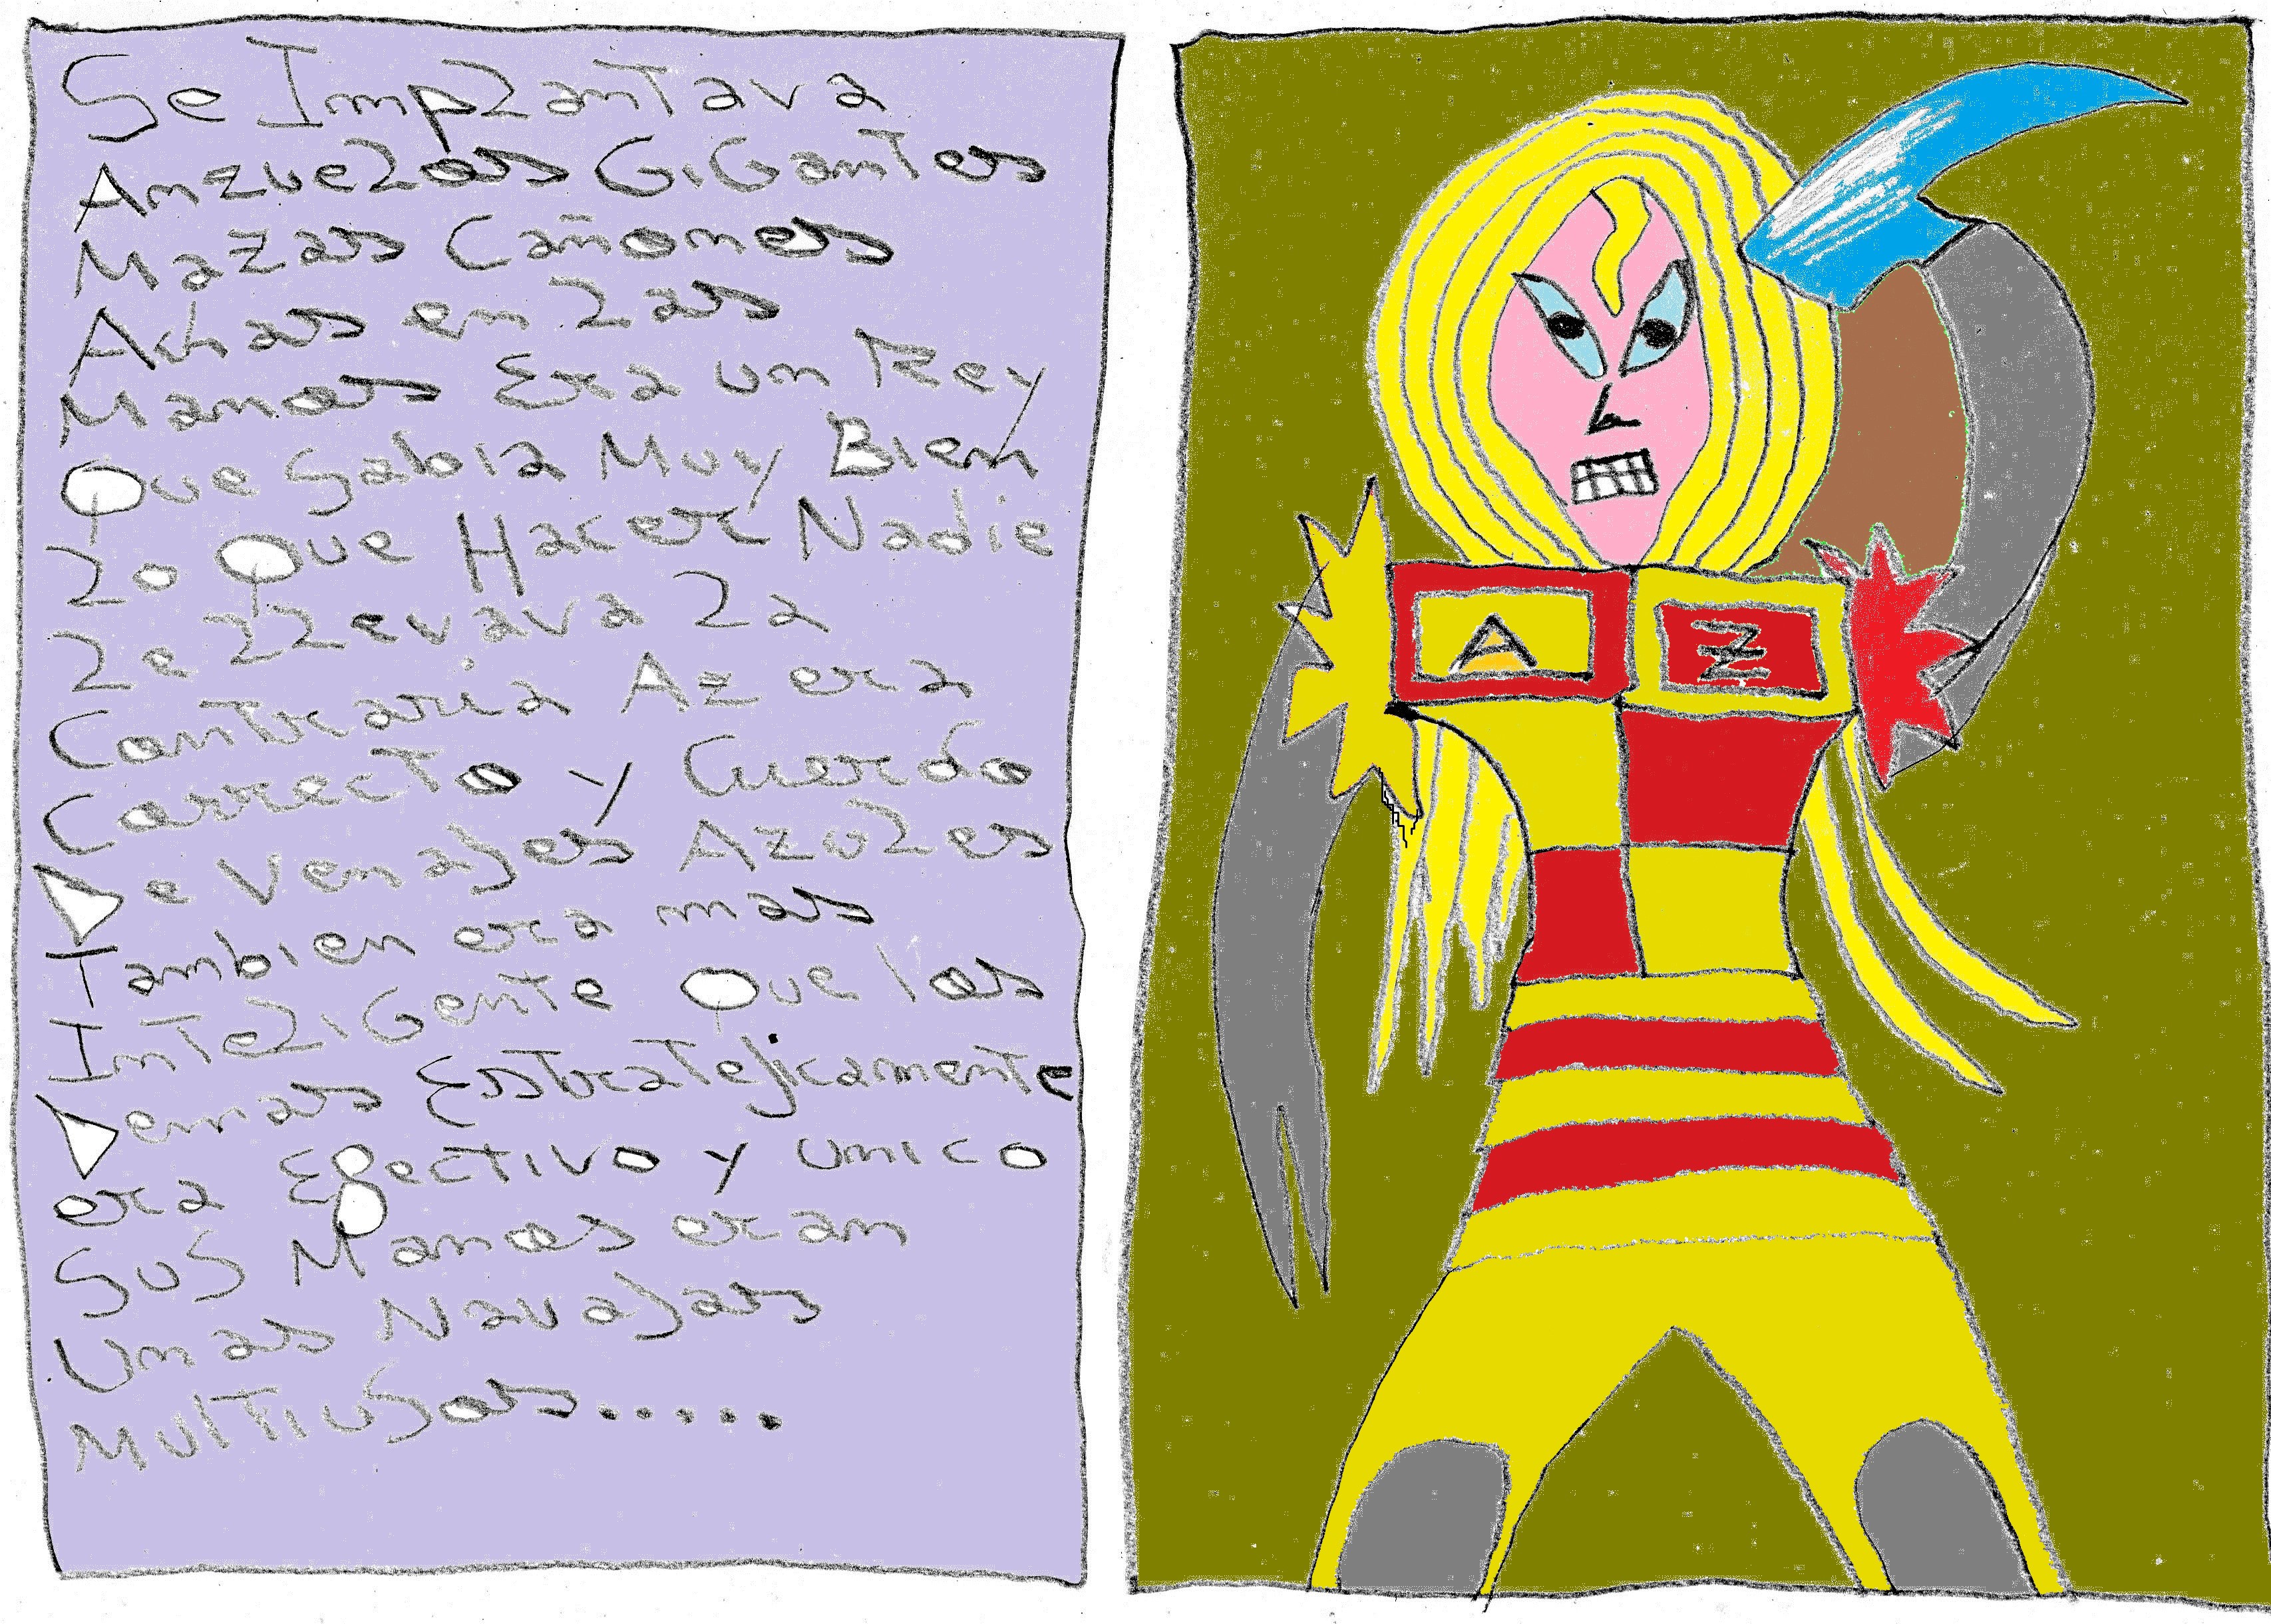 Se Implantava
Anzuelos GiGantes
Mazas Cañones
Achas en las
Manos Era un Rey
Que Sabia Muy Bien
lo Que Hacer Nadie
le llevava la
Contraria Az era
Correcto y Cuerdo
De Venajes Azules
Tambien era mas
InteliGente Que los
Demas Esstratejicamente
era Efectivo y unico
SuS Manos eran
Unas Navajas
MultiuSos.....
A Z